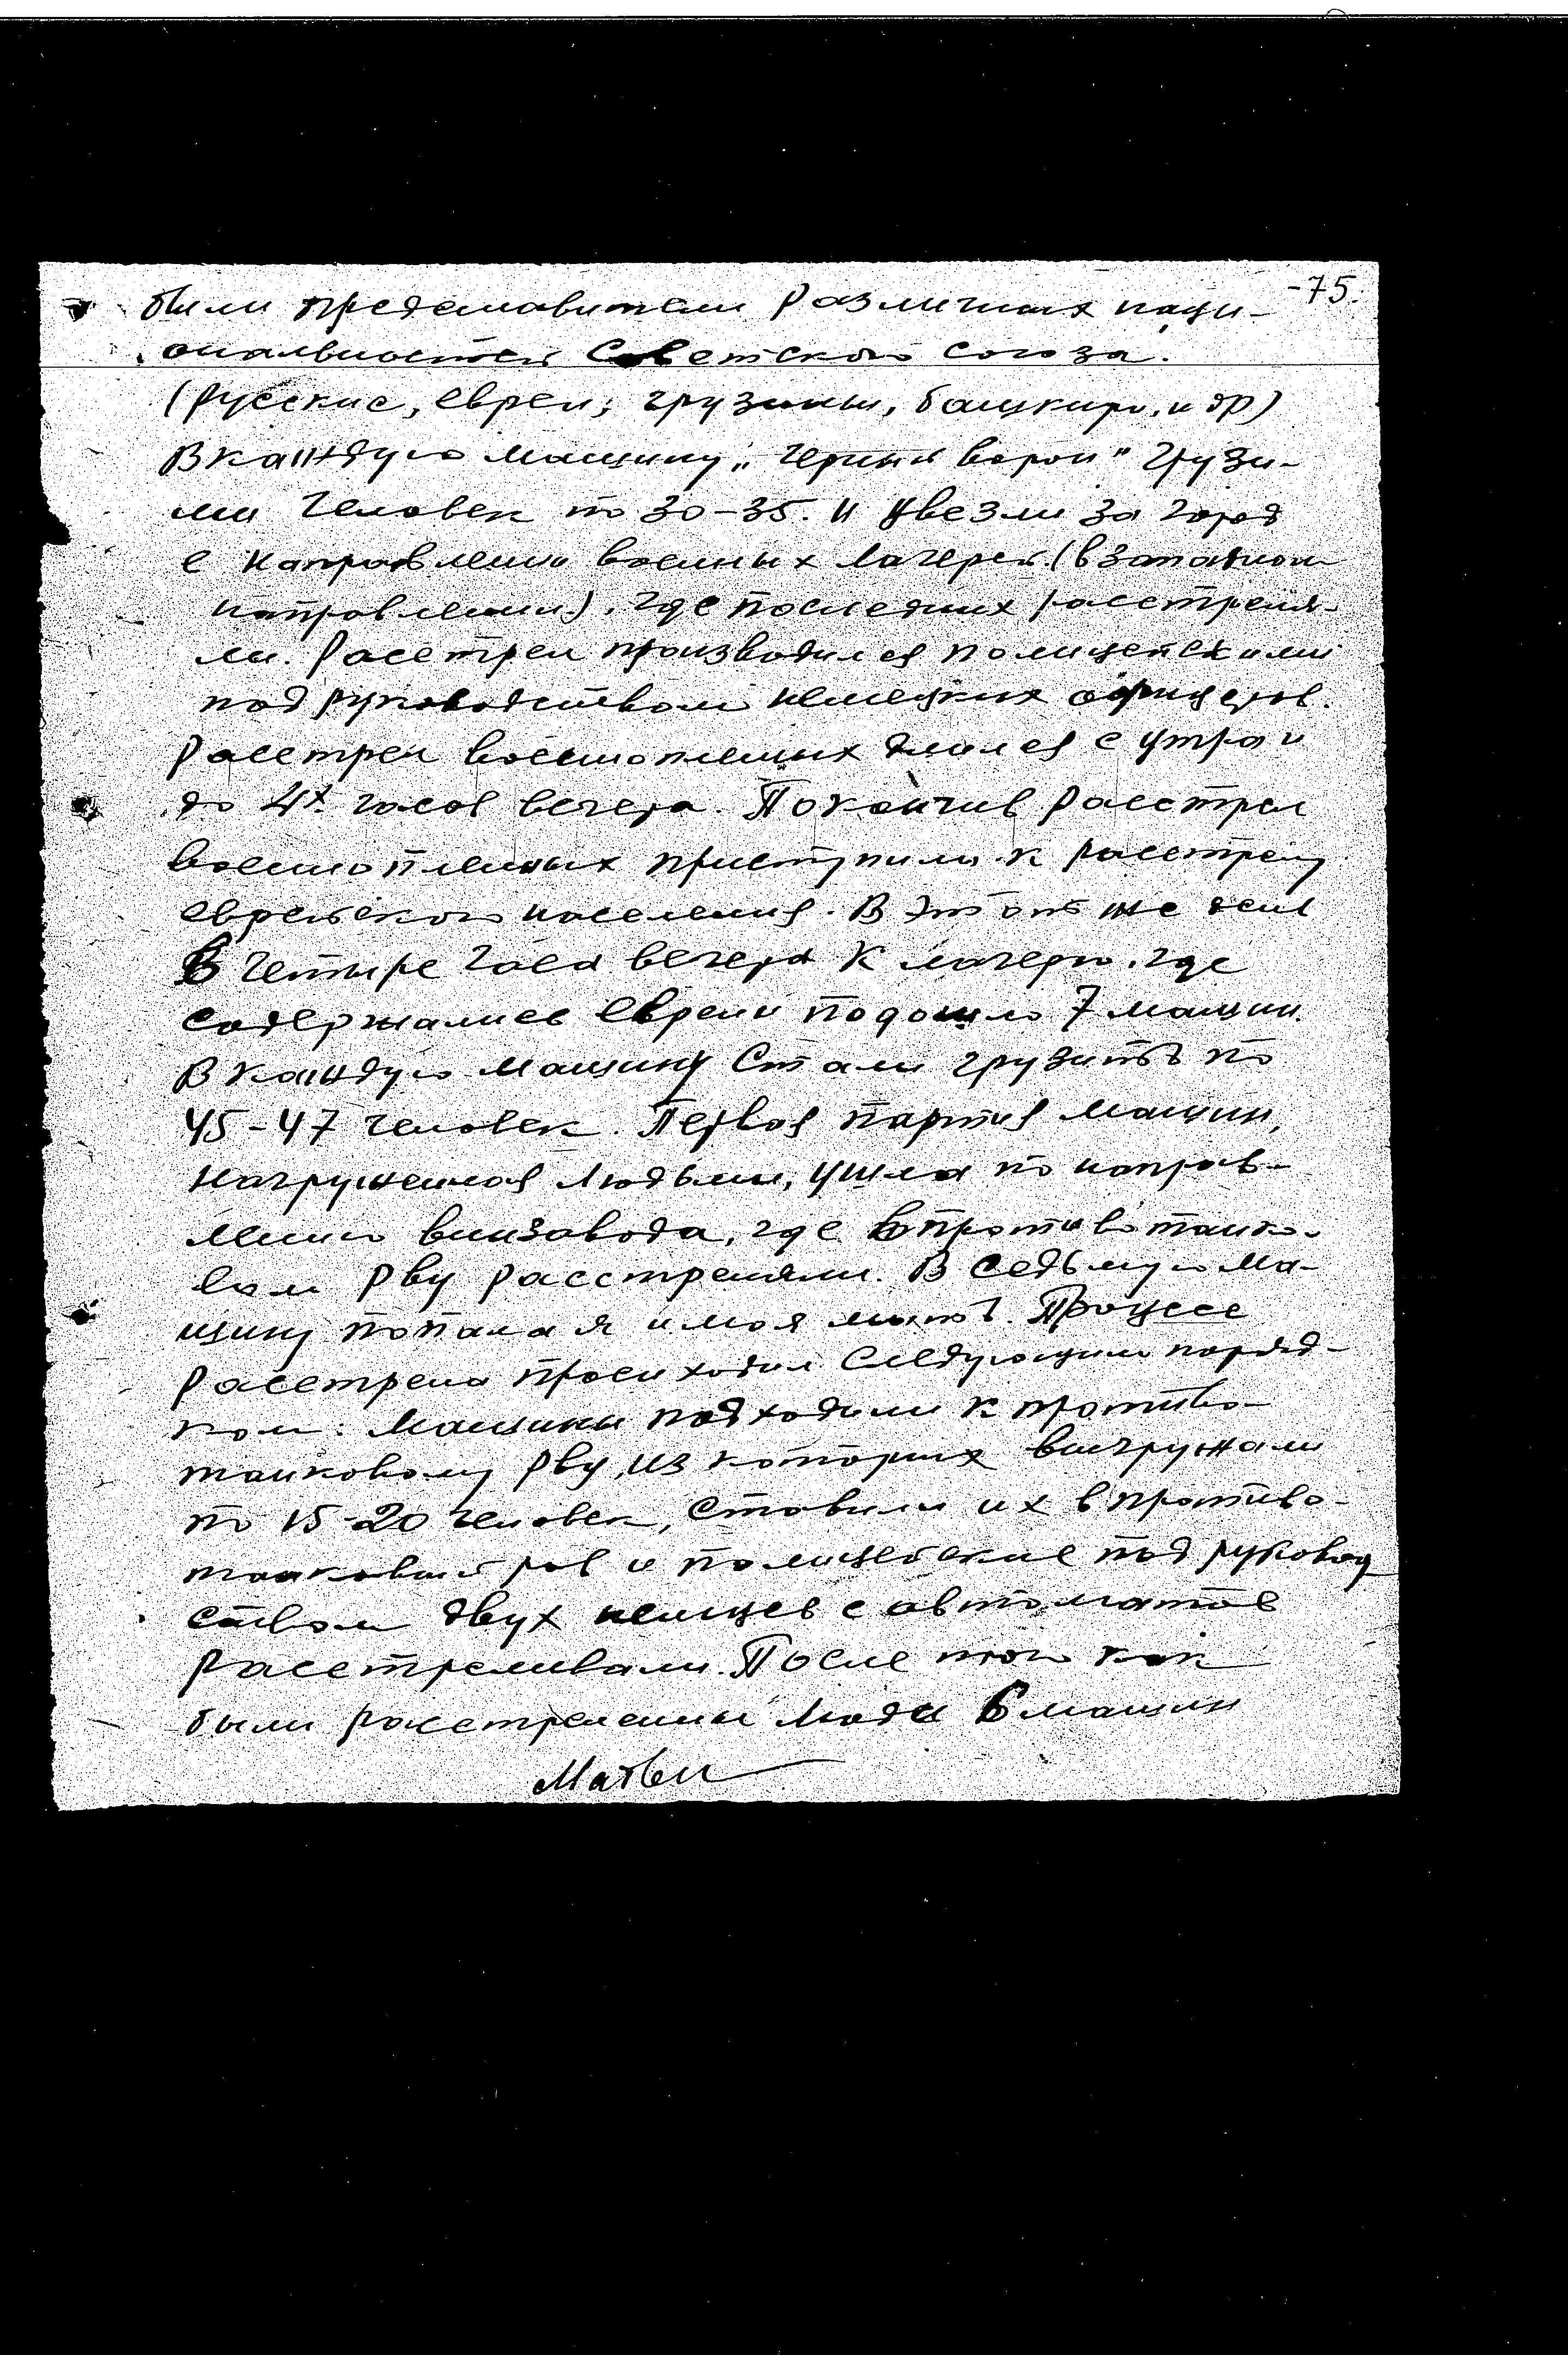 -75.
были представители различных наци-
ональностей Советского союза.
(Русские, евреи, грузины, башкиры, и др)
В каждую машину „черный ворон" грузи-
ли человек по 30-35. и увезли за город
в направлении военных лагерей. (в западном
направлении). где последних расстреля-
ли. Расстрел производился полицейскими
под руководством немецких офицеров.
Расстрел военнопленных длился с утра и
до 4х часов вечера. Покончив расстрел
военнопленных приступили к расстрелу
еврейского населения. В этот же день
в четыре часа вечера к лагерю, где
содержались евреи подошло 7 машин.
В каждую машину стали грузить по
45-47 человек. Первая партия машин,
нагруженная людьми, ушла по направ-
лению винзавода, где в противотанко-
вом рву расстреляли. В седьмую ма-
шину попала я и моя мать. Процесс
расстрела происходил следующим поряд-
ком: машины подходили к противо-
танковому рву, из которых выгружали
по 15-20 человек, ставили их в противо-
танковый ров и полицейские под руковод
ством двух немцев с автоматов
расстреливали. После того как
были расстреляны люди 6 машин